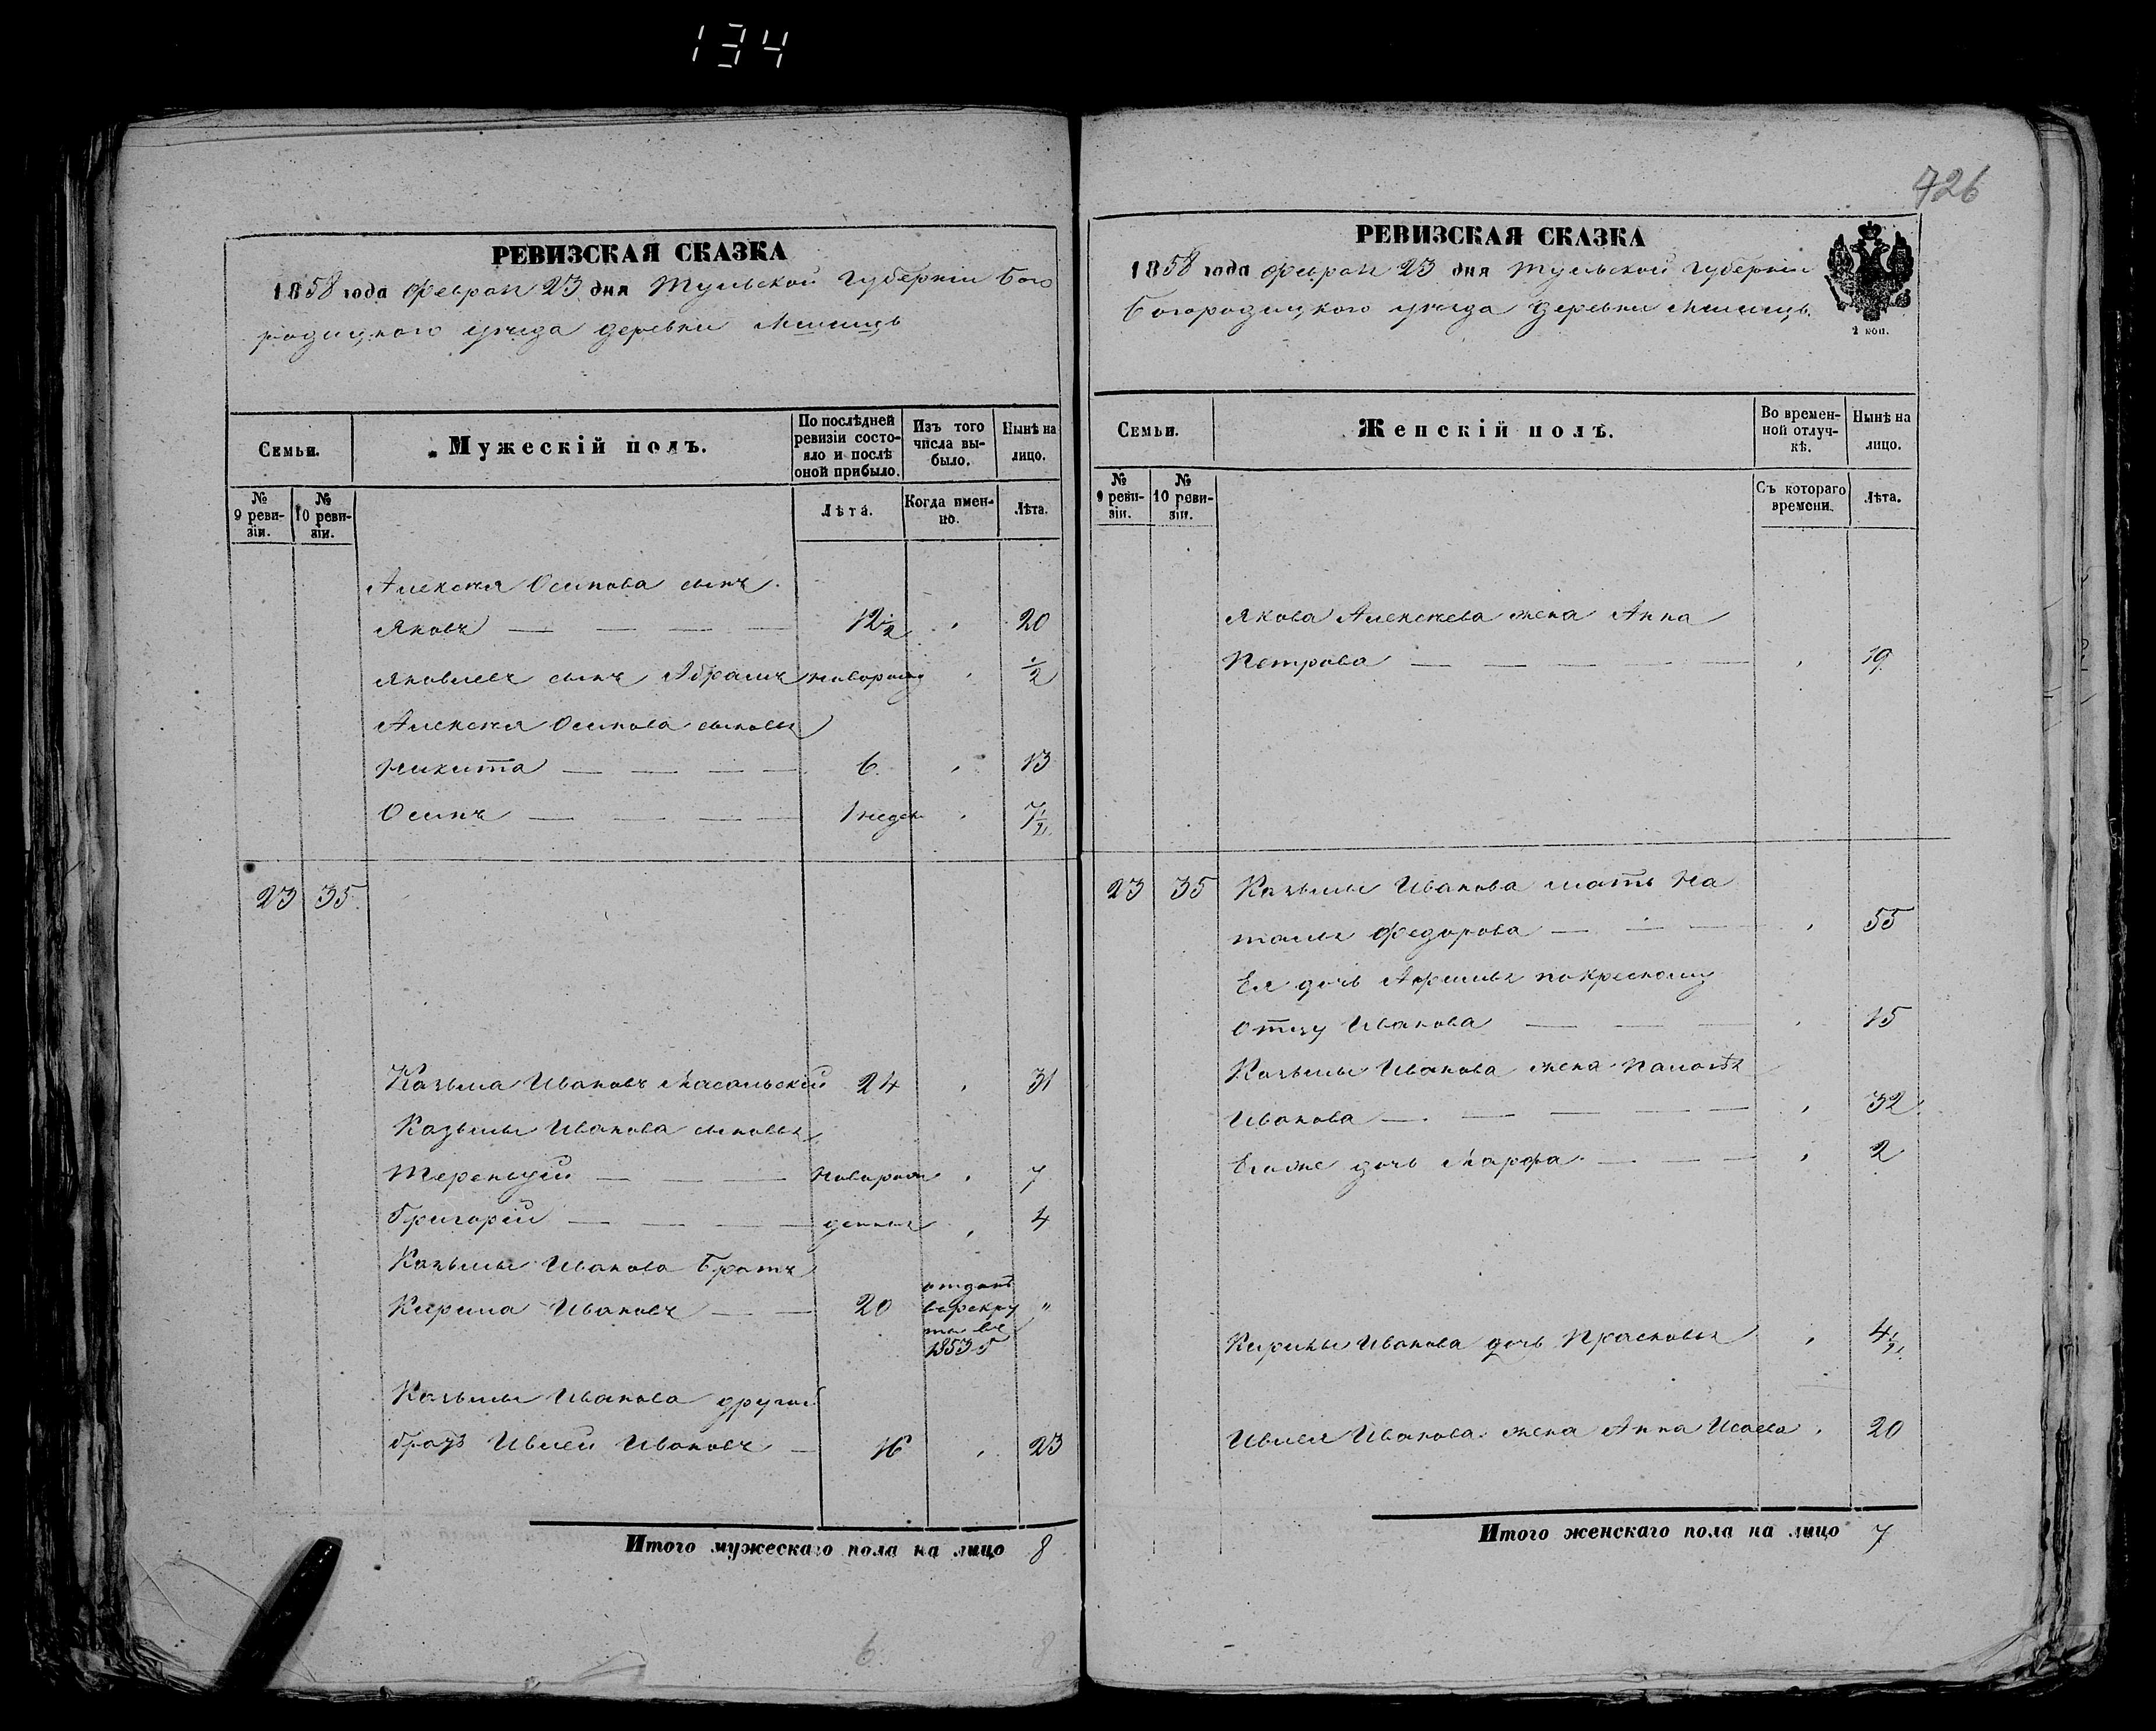 134
426
РЕВИЗСКАЯ СКАЗКА
1858 года Феврал 23 дня Тульской Губерніи Бого
родицкаго уезда деревни
Семьи.
Мужескій полъ.
По послѣдней ревизіи состо-
яло и послѣ оной прибыло.
Изъ того числа вы-
было.
Нынѣ на лицо.
№ 9 реви-
зіи.
№ 10 реви-
зіи.
Лѣта.
Когда имен-
но.
Лѣта.
Алексея Осипова сынъ
Яковъ — — — — 12½ 20
Яковлевъ сынъ Абрамъ новорожд ½
Алексея Осипова сыновья
Никита — — — — 6 13
Осипъ — — — — 1 недел 7½
23 35
Казьма Ивановъ Масальскій 24 31
Казьмы Иванова сыновья
Терентий — — — новорож 7
Григорій — — — — денные 4
Казьмы Иванова братъ
Кирила Ивановъ — — 20 отданъ врекру ты въ 1853 г "
Казьмы Иванова другой
братъ Ивлей Ивановъ — 16 23
Итого мужескаго пола на лицо 8
6. 8
РЕВИЗСКАЯ СКАЗКА
1858 года Феврал 23 дня Тульской Губерніи
Богородицкого уезда деревни
2 коп.
Семьи.
Женскій полъ.
Во времен-
ной отлуч-
кѣ.
Нынѣ на лицо.
№ 9 реви-
зіи.
№ 10 реви-
зіи.
Съ котораго времени.
Лѣта.
Якова Алексеева жена Анна
Петрова — — — — — 19
23 35 Казьмы Иванова мать На
талья Федорова — — — 55
Ея дочь Афимья покресному
отцу Иванова — — — 15
Казьмы Иванова жена
Иванова — — — — — 32
Егоже дочь Марфа — — — 2
Кирилы Иванова дочь Прасковья 4½
Ивлея Иванова жена Анна Исаева 20
Итого женскаго пола на лицо 7